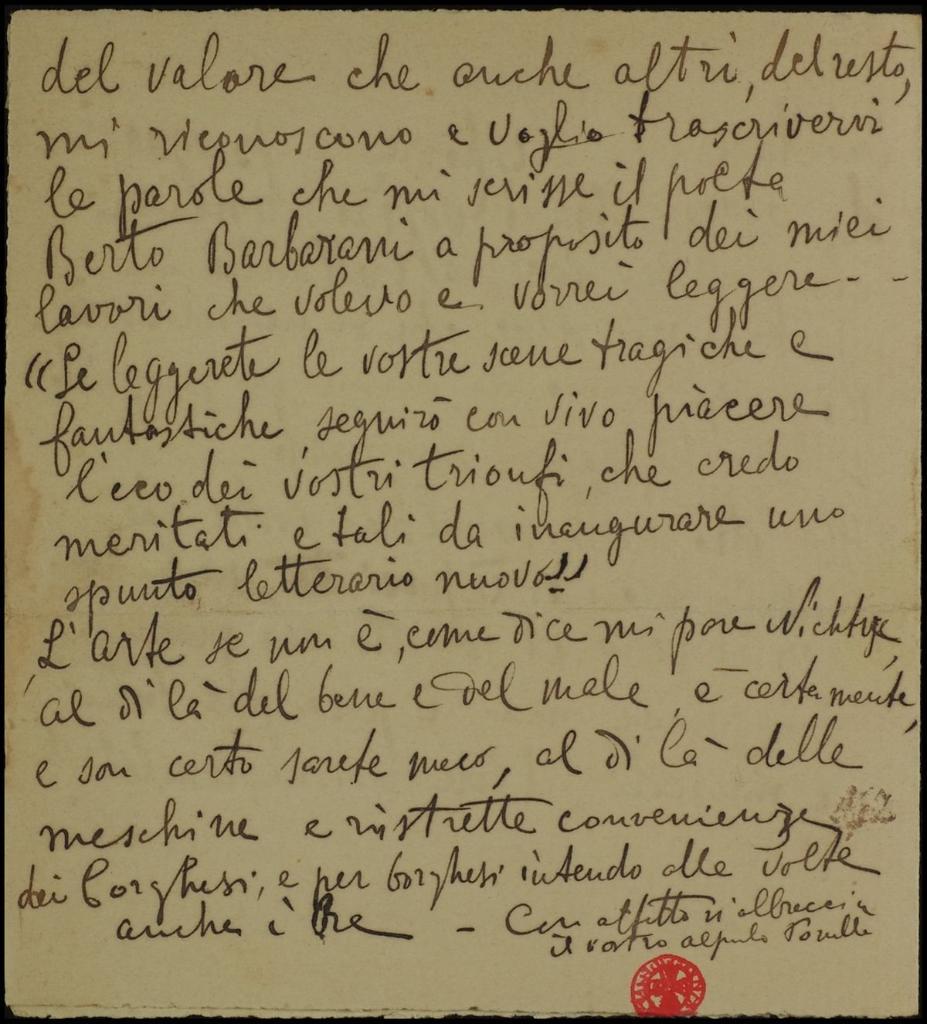 del valore che anche altri, del resto,
mi riconoscono e voglio trascrivervi
le parole che mi scrisse il poeta
Berto Barbarani a proposito dei miei
lavori che volevo e vorrei leggere - -
“Se leggerete le vostre scene tragiche e
fantastiche, seguirò con vivo piacere
l'eco dei vostri trionfi, che credo
meritati e tali da inaugurare uno
spunto letterario nuovo!!
L'Arte se non è, come dice mi pare
al di là del bene e del male, è certamente,
e son certo sarete meco, al di là delle
meschine e ristrette convenienze
dei borghesi, e per borghesi intendo alle volte
anche i Re - Con affetto vi abbraccia
il vostro